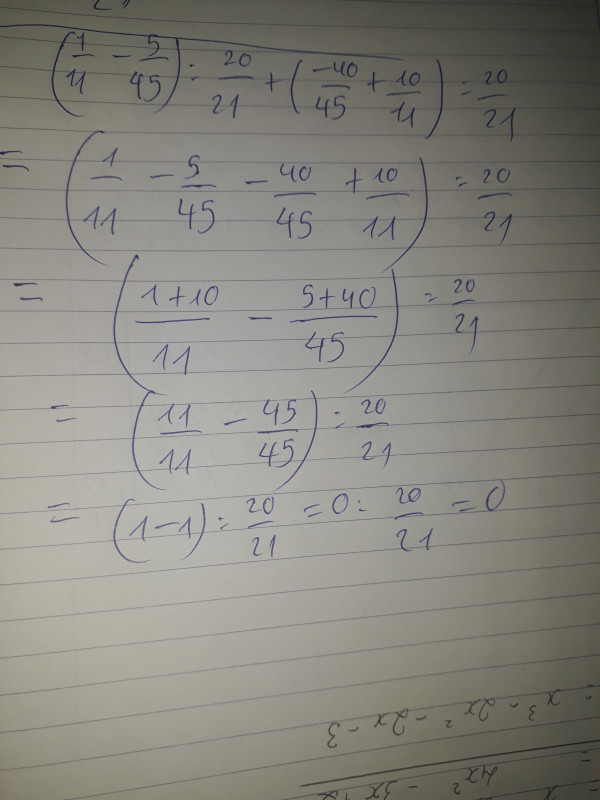 (1/11 - 5/45) : 20/21 + (-40/45 + 10/11) : 20/21
= (1/11 - 5/45 - 40/45 + 10/11) : 20/21
= (1+10/11 - 5+40/45) : 20/21
= (11/11 - 45/45) : 20/21
= (1-1) : 20/21 = 0 : 20/21 = 0
= x³ - 2x² - 2x - 3